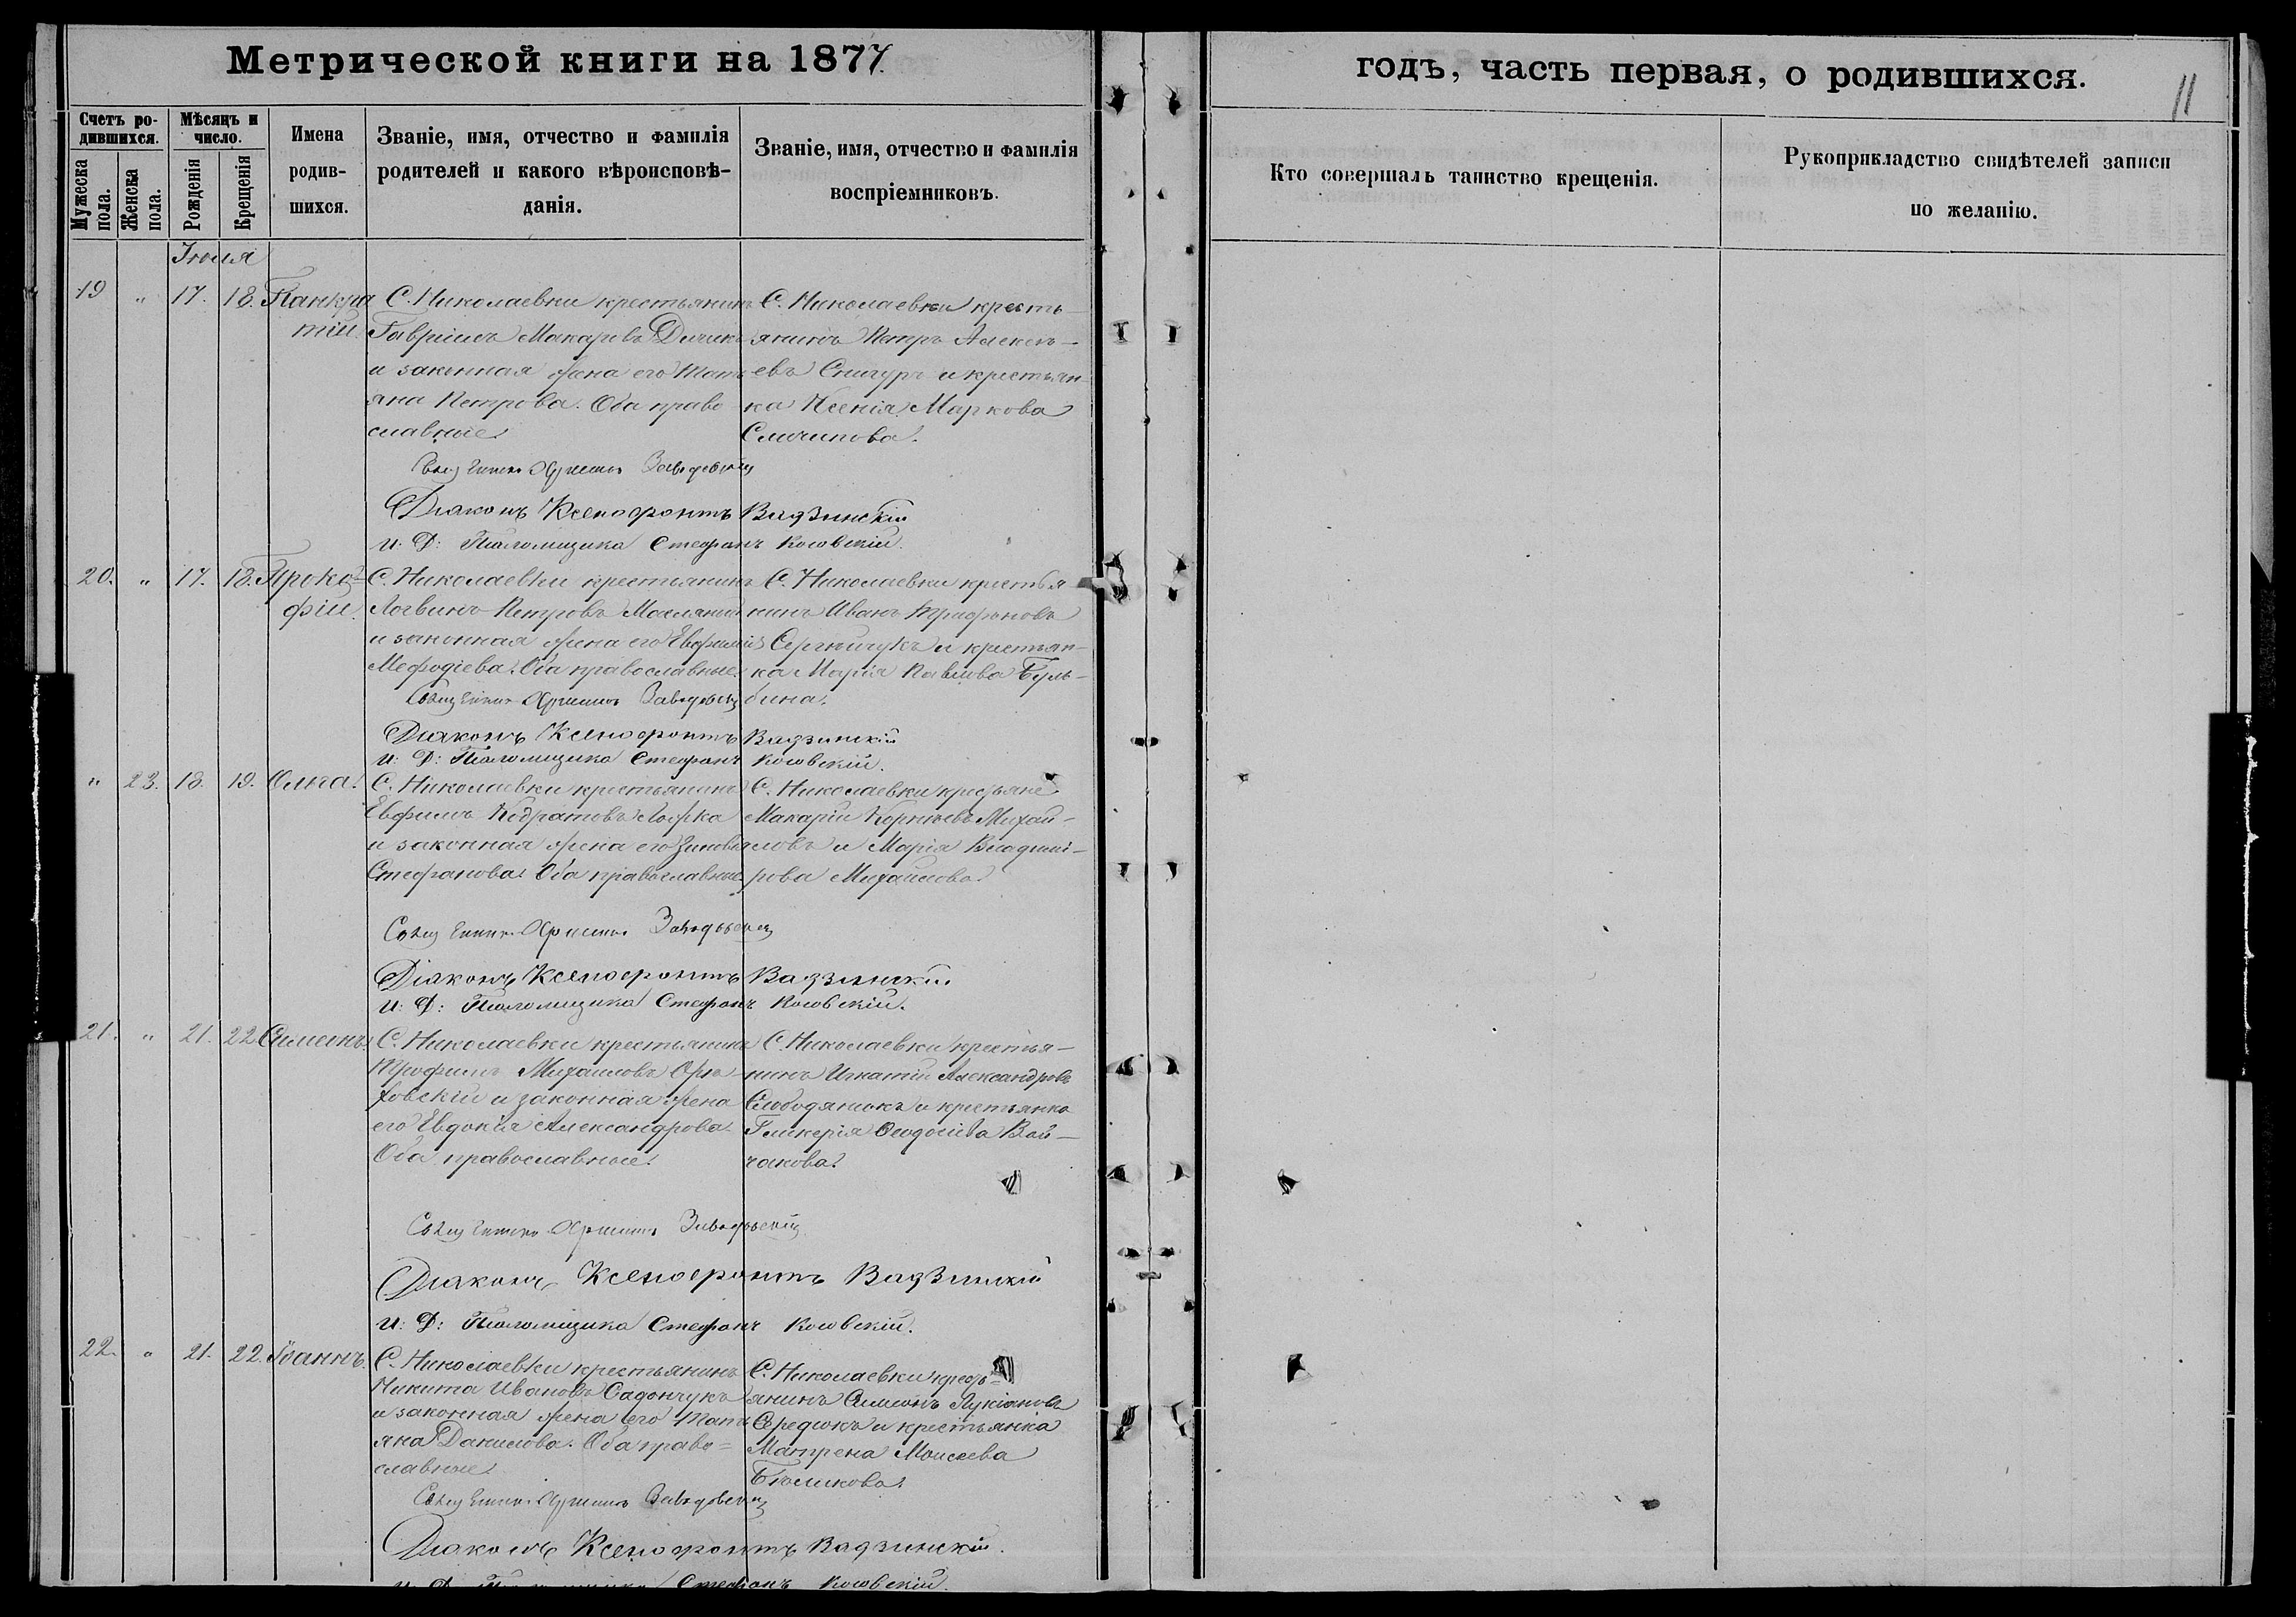 Метрической книги на 1877.
годъ, часть первая, о родившихся.
11
Счетъ ро-
дившихся.
Мужеска
пола.
Женска
пола.
Мѣсяцъ и
число.
Рожденія
Крещенія
Имена
родив-
шихся.
Званіе, имя, отчество и фамилія
родителей и какого вѣроисповѣ-
данія.
Званіе, имя, отчество и фамилія
воспріемниковъ.
Кто совершалъ таинство крещенія.
Рукоприкладство свидѣтелей записи
по желанію.
19 " 17. 18. Панкра
тій.
С. Николаевки крестьянинъ
Гавріилъ Макаровъ
и законная жена его Тать
яна Петрова. Оба право
славные.
С. Николаевки кресть
янинъ Петръ Алексѣ-
евъ Снигуръ и крестьян-
ка Ксенія Маркова
Діаконъ Ксенофонтъ Вадзинскій
и: Д: Псаломщика Стефанъ Косовскій.
20. " 17. 18. Проко-
фій.
С. Николаевки крестьянинъ
Логвинъ Петровъ
и законная жена его Евфимія
Мефодіева. Оба православные.
С. Николаевки крестья
нинъ Иванъ Трифоновъ
Сергійчукъ и крестьян-
ка Марія Павлова Буль-
бина.
Діаконъ Ксенофонтъ Вадзинскій
и: Д: Псаломщика Стефанъ Косовскій.
" 23. 18. 19. Олга.
С. Николаевки крестьянинъ
Евфимъ Кодратовъ
и законная жена его
Стефанова. Оба православные
С. Николаевки крестьяне
Макарій Корніевъ Михай-
ловъ и Марія Владимі-
рова Михайлова.
Діаконъ Ксенофонтъ Вадзинскій
и: Д: Псаломщика Стефанъ Косовскій.
21. " 21. 22. Симеонъ.
С. Николаевки крестьянинъ
Трофимъ Михаиловъ Орѣ-
ховскій и законная жена
его Евдокія Александрова.
Оба православные.
С. Николаевки крестья-
нинъ Игнатій Александровъ
Слободянюкъ и крестьянка
Гликерія Ѳеодосіева Вой-
чакова.
Діаконъ Ксенофонтъ Вадзинскій
и: Д: Псаломщика Стефанъ Косовскій.
22. " 21. 22. Іоаннъ.
С. Николаевки крестьянинъ
Никита Ивановъ Садончукъ
и законная жена его Тать
яна Данилова. Оба право=
славные.
С. Николаевки кресть=
янинъ Симеонъ Лукіановъ
Середюкъ и крестьянка
Матрена Моисеева
Бѣликова.
Діаконъ Ксенофонтъ Вадзинскій.
и: Д: Псаломщика Стефанъ Косовскій.